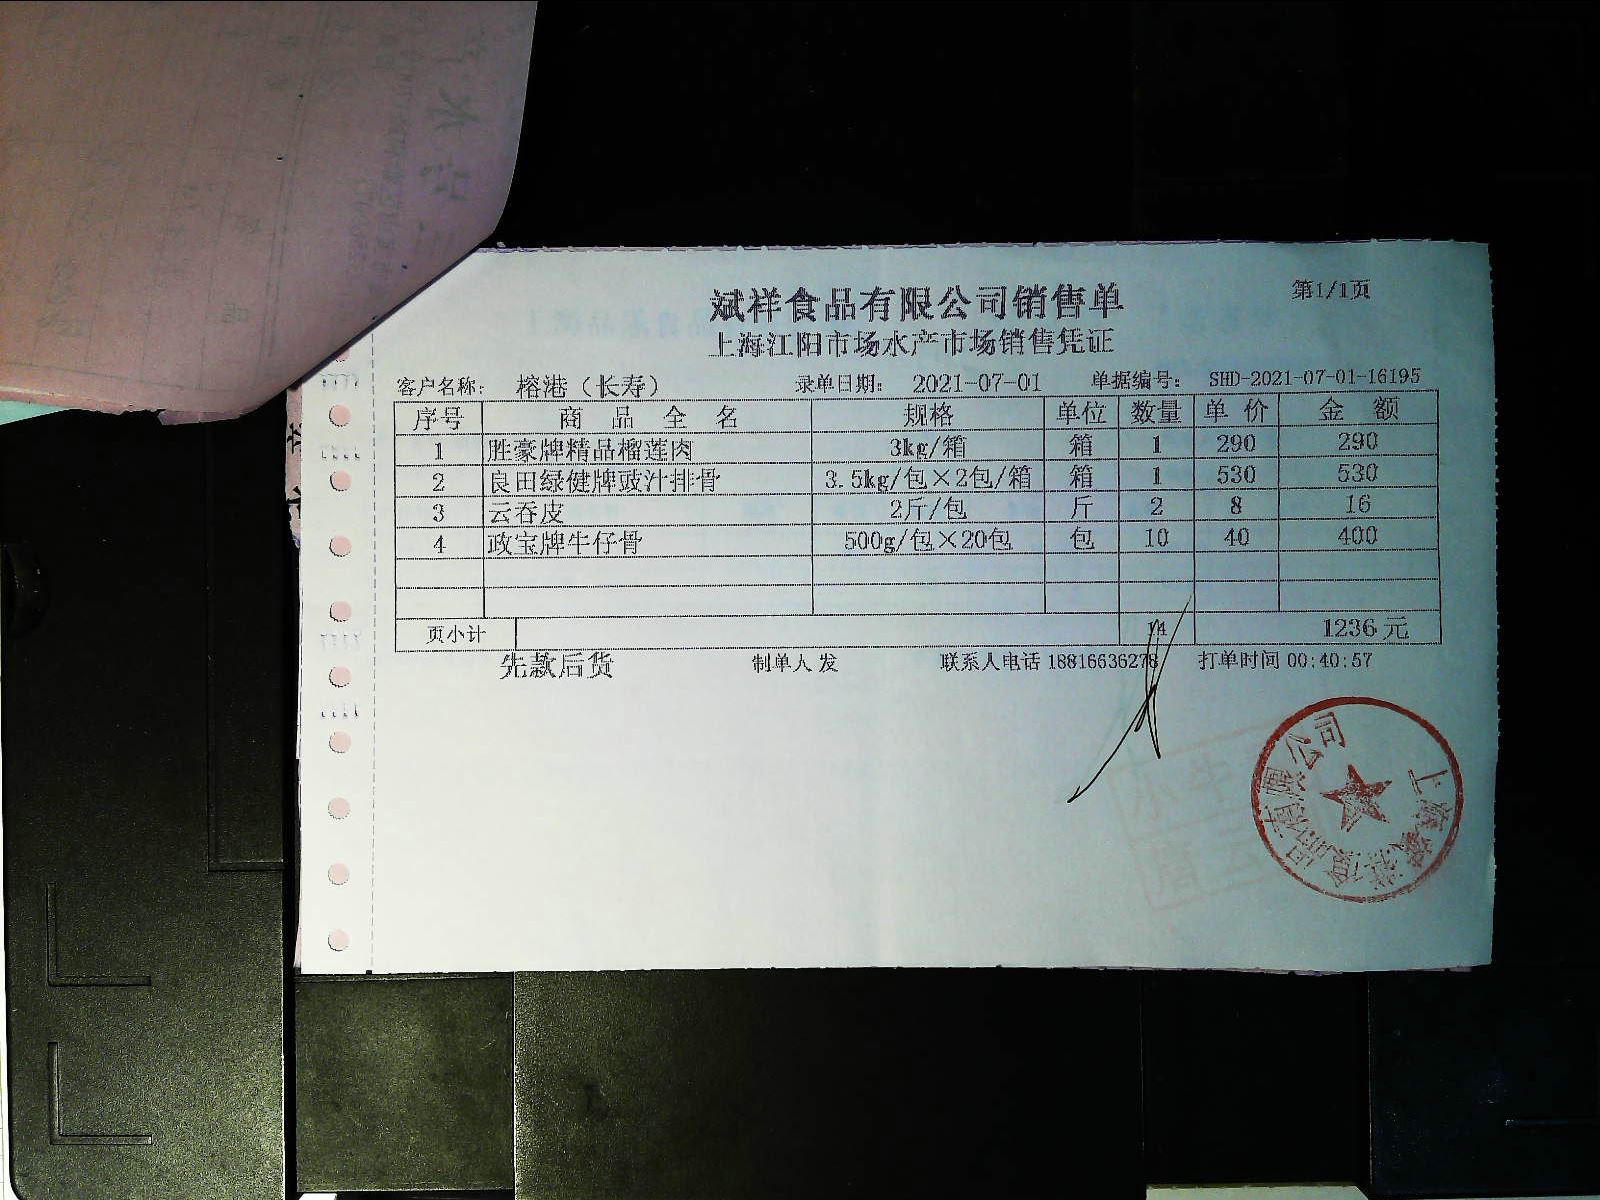 斌祥食品有限公司销售单
第1/1页
上海江阳市场水产市场销售凭证
客户名称： 榕港（长寿） 录单日期： 2021-07-01 单据编号： SHD-2021-07-01-16195
序号 商品全名 规格 单位 数量 单价 金额
1 胜豪牌精品榴莲肉 3kg/箱 箱 1 290 290
2 良田绿健牌豉汁排骨 3.5kg/包×2包/箱 箱 1 530 530
3 云吞皮 2斤/包 斤 2 8 16
4 政宝牌牛仔骨 500g/包×20包 包 10 40 400
页小计 14 1236元
先款后货 制单人 发 联系人电话 18816636278 打单时间 00:40:57